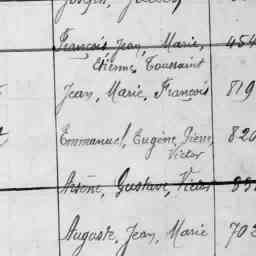 Joseph,
François Jean, Marie, 454
Etienne Toussaint
Jean, Marie, François 819
Emmanuel, Eugène, Pierre, 820
Victor
Arsène, Gustave, Victor
Auguste, Jean, Marie 703